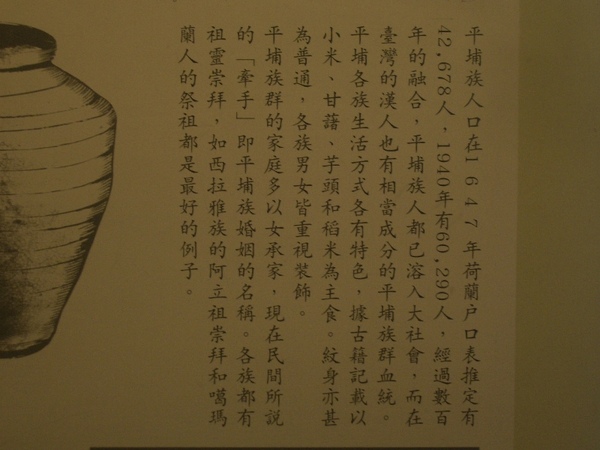 平埔族人口在1647年荷蘭戶口表推定有
42,678人，1940年有60,290人，經過數百
年的融合，平埔族人都已溶入大社會，而在
臺灣的漢人也有相當成分的平埔族群血統。
平埔各族生活方式各有特色，據古籍記載以
小米、甘藷、芋頭和稻米為主食。紋身亦甚
為普通，各族男女皆重視裝飾。
平埔族群的家庭多以女承家，現在民間所說
的「牽手」即平埔族婚姻的名稱。各族都有
祖靈崇拜，如西拉雅族的阿立祖崇拜和噶瑪
蘭人的祭祖都是最好的例子。